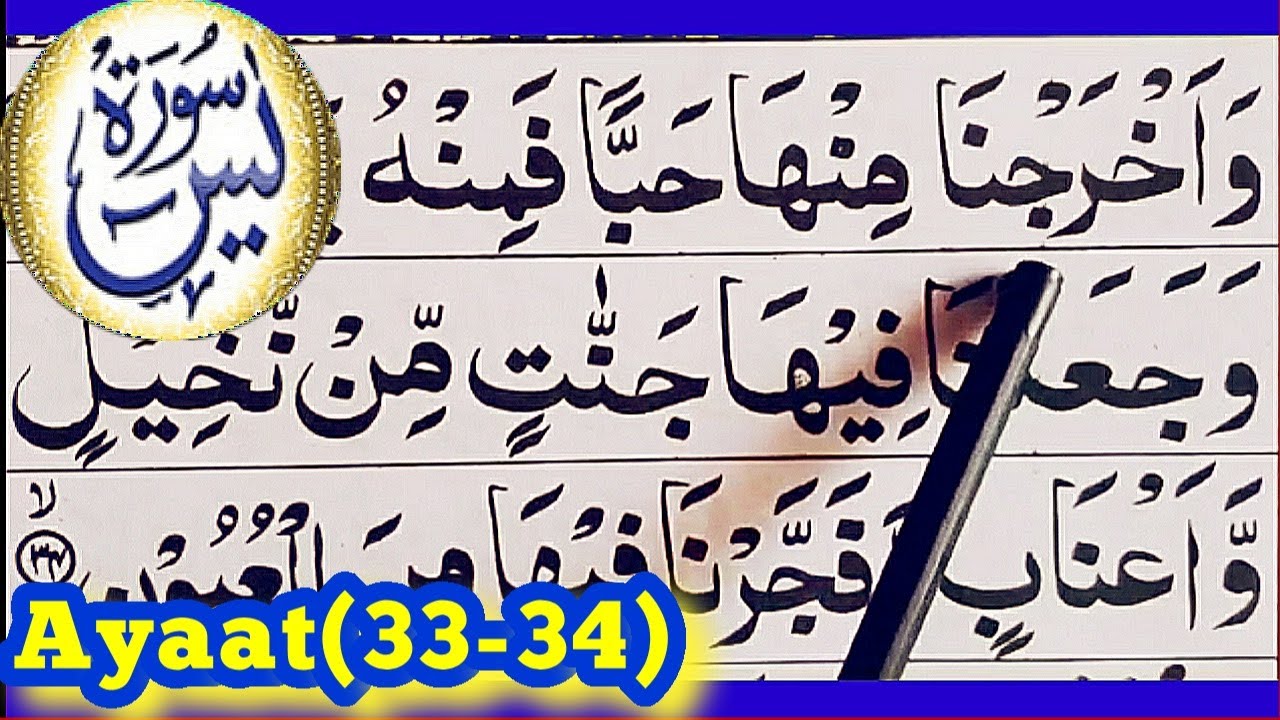 سُورَةُ
يٰسٓ
وَاَخْرَجْنَا مِنْهَا حَبًّا فَمِنْهُ
وَجَعَلْنَا فِيْهَا جَنّٰتٍ مِّنْ نَّخِيْلٍ
وَّاَعْنَابٍ وَّفَجَّرْنَا فِيْهَا مِنَ الْعُيُوْنِ ۙ ﴿۳۴﴾
Ayaat(33-34)